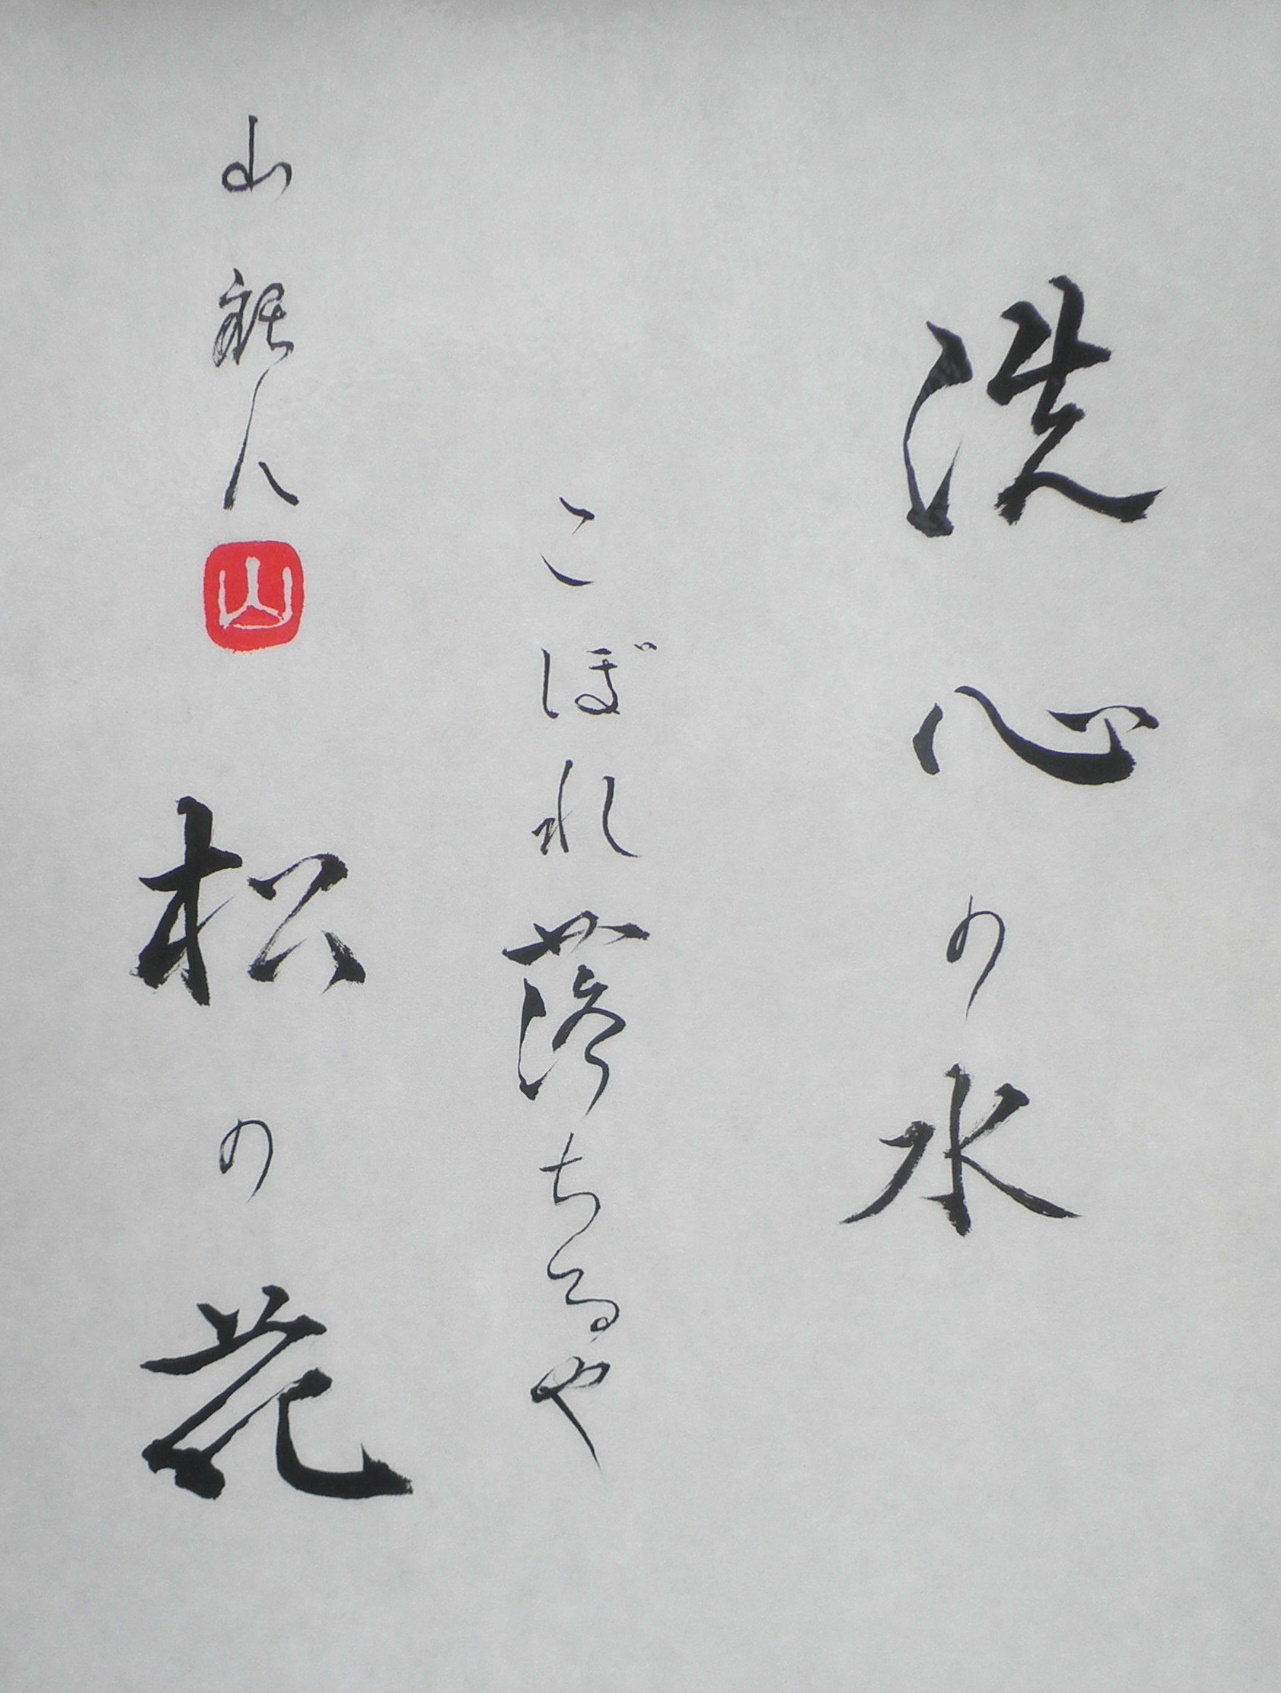 洗心の水
こぼれ落ちるや
松の花
山
人
山